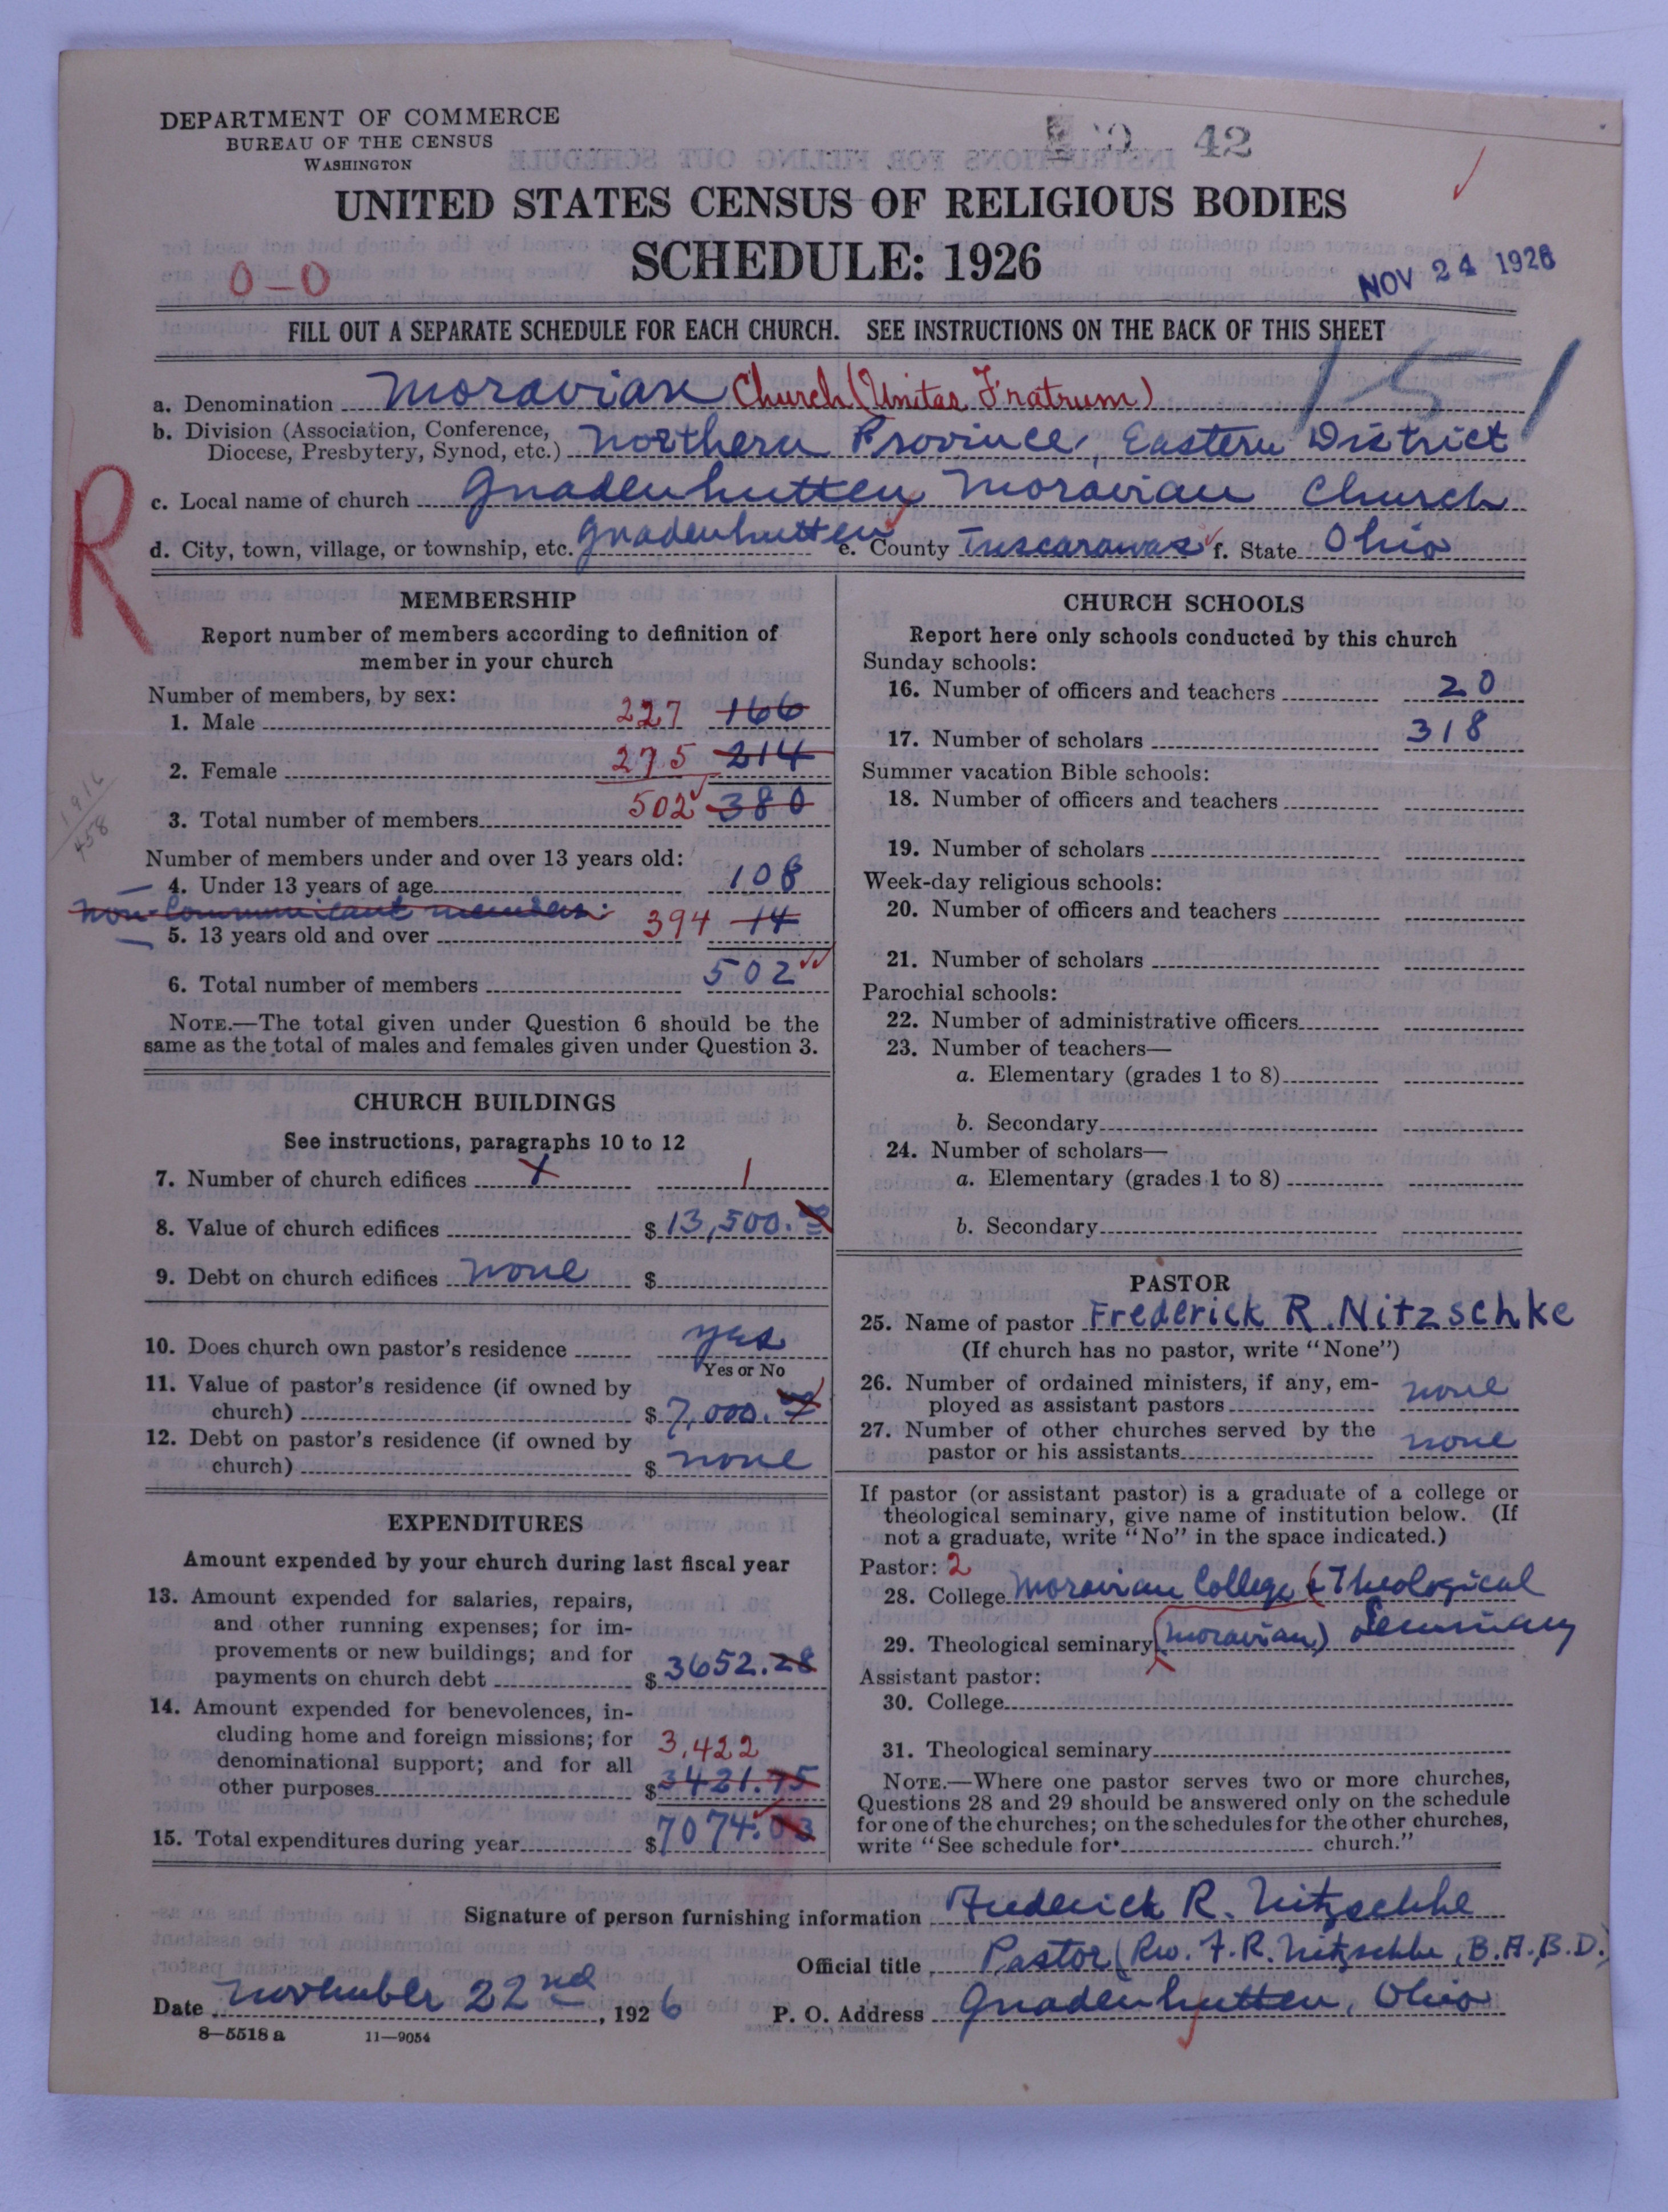 DEPARTMENT OF COMMERCE
BUREAU OF THE CENSUS
WASHINGTON
42
UNITED STATES CENSUS OF RELIGIOUS BODIES
SCHEDULE: 1926
0-0
NOV 24 1926
FILL OUT A SEPARATE SCHEDULE FOR EACH CHURCH. SEE INSTRUCTIONS ON THE BACK OF THIS SHEET
151
a. Denomination Moravian Church (Unitas Fratrum)
b. Division (Association, Conference, Diocese, Presbytery, Synod, etc.) Northern Province, Eastern District
R
c. Local name of church Gnadenhutten Moravian Church
d. City, town, village, or township, etc. Gnadenhutten e. County Tuscarawas f. State Ohio
MEMBERSHIP
Report number of members according to definition of
member in your church
Number of members, by sex:
1. Male 227 166
2. Female 275 214
1916
458
3. Total number of members 502 380
Number of members under and over 13 years old:
4. Under 13 years of age 108
non-Communicant members:
5. 13 years old and over 394 14
6. Total number of members 502
NOTE.—The total given under Question 6 should be the
same as the total of males and females given under Question 3.
CHURCH BUILDINGS
See instructions, paragraphs 10 to 12
7. Number of church edifices 1 1
8. Value of church edifices $ 13,500.00
9. Debt on church edifices none $
10. Does church own pastor's residence yes
Yes or No
11. Value of pastor's residence (if owned by
church) $ 7,000.00
12. Debt on pastor's residence (if owned by
church) $ none
EXPENDITURES
Amount expended by your church during last fiscal year
13. Amount expended for salaries, repairs,
and other running expenses; for im-
provements or new buildings; and for
payments on church debt $ 3652.28
14. Amount expended for benevolences, in-
cluding home and foreign missions; for
denominational support; and for all 3,422
other purposes $ 3421.75
15. Total expenditures during year $ 7074.03
CHURCH SCHOOLS
Report here only schools conducted by this church
Sunday schools:
16. Number of officers and teachers 20
17. Number of scholars 318
Summer vacation Bible schools:
18. Number of officers and teachers
19. Number of scholars
Week-day religious schools:
20. Number of officers and teachers
21. Number of scholars
Parochial schools:
22. Number of administrative officers
23. Number of teachers—
a. Elementary (grades 1 to 8)
b. Secondary
24. Number of scholars—
a. Elementary (grades 1 to 8)
b. Secondary
PASTOR
25. Name of pastor Frederick R. Nitzschke
(If church has no pastor, write "None")
26. Number of ordained ministers, if any, em-
ployed as assistant pastors none
27. Number of other churches served by the
pastor or his assistants none
If pastor (or assistant pastor) is a graduate of a college or
theological seminary, give name of institution below. (If
not a graduate, write "No" in the space indicated.)
Pastor: 2
28. College Moravian College & Theological
29. Theological seminary (Moravian) Seminary
Assistant pastor:
30. College
31. Theological seminary
NOTE.—Where one pastor serves two or more churches,
Questions 28 and 29 should be answered only on the schedule
for one of the churches; on the schedules for the other churches,
write "See schedule for church."
Signature of person furnishing information Frederick R. Nitzschke
Official title Pastor (Rev. F. R. Nitzschke, B.A., B.D.)
Date November 22nd, 1926 P. O. Address Gnadenhutten, Ohio
8—5518 a 11—9054